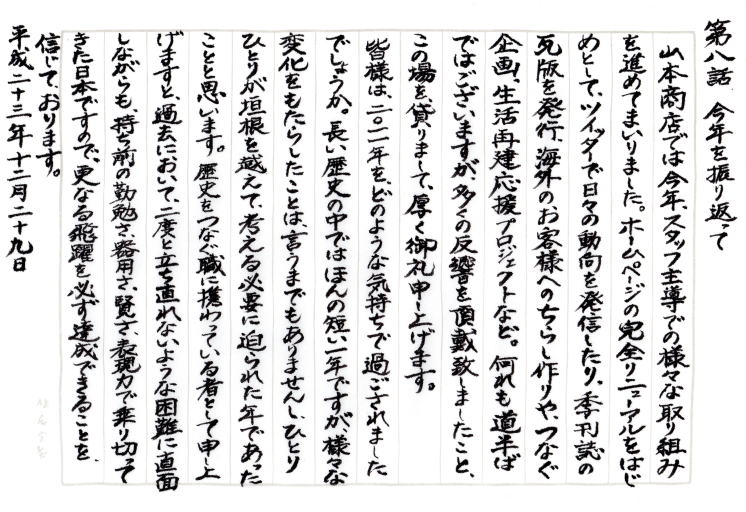 第八話　今年を振り返って
山本商店では今年、スタッフ主導での様々な取り組み
を進めてまいりました。ホームページの完全リニューアルをはじ
めとして、ツイッターで日々の動向を発信したり、季刊誌の
瓦版を発行、海外のお客様へのちらし作りや、つなぐ
企画、生活再建応援プロジェクトなど。何れも道半ば
ではございますが、多くの反響を頂戴致しましたこと、
この場を貸りまして、厚く御礼申し上げます。
皆様は、二〇一一年を、どのような気持ちで過ごされました
でしょうか。長い歴史の中ではほんの短い一年ですが、様々な
変化をもたらしたことは、言うまでもありませんし、ひとり
ひとりが垣根を越えて、考える必要に迫られた年であった
ことと思います。歴史をつなぐ職に携わっている者として申し上
げますと、過去において、二度と立ち直れないような困難に直面
しながらも、持ち前の勤勉さ、器用さ、賢さ、表現力で乗り切って
きた日本ですので、更なる飛躍を必ず達成できることを、
信じて、おります。
平成二十三年十二月二十九日